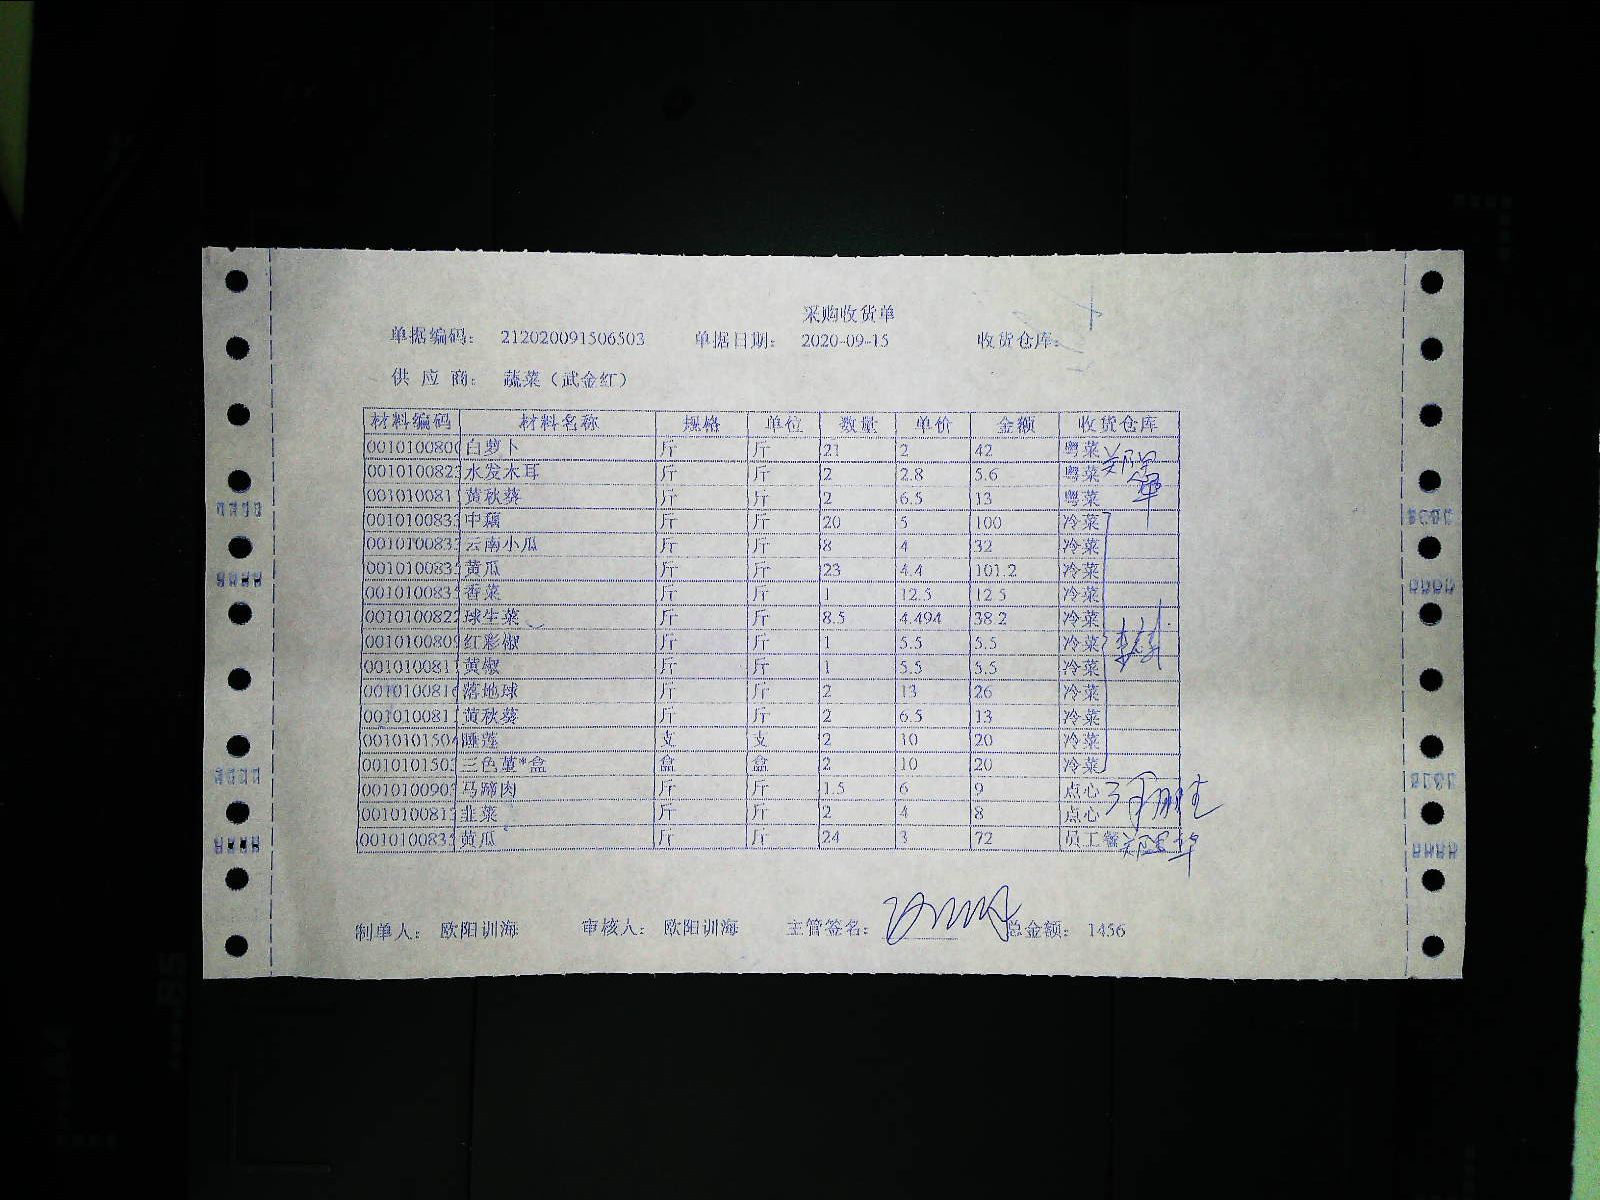 采购收货单
单据编码： 212020091506503 单据日期： 2020-09-15 收货仓库：
供 应 商： 蔬菜（武金红）
材料编码 材料名称 规格 单位 数量 单价 金额 收货仓库
0010100800 白萝卜 斤 斤 21 2 42 粤菜
001010082 水发木耳 斤 斤 2 2.8 5.6 粤菜
001010081 黄秋葵 斤 斤 2 6.5 13 粤菜
001010083 中藕 斤 斤 20 5 100 冷菜
001010083 云南小瓜 斤 斤 8 4 32 冷菜
001010083 黄瓜 斤 斤 23 4.4 101.2 冷菜
001010083 香菜 斤 斤 1 12.5 12.5 冷菜
001010082 球生菜 斤 斤 8.5 4.494 38.2 冷菜
001010080 红彩椒 斤 斤 1 5.5 5.5 冷菜
001010081 黄椒 斤 斤 1 5.5 5.5 冷菜
001010081 落地球 斤 斤 2 13 26 冷菜
001010081 黄秋葵 斤 斤 2 6.5 13 冷菜
001010150 睡莲 支 支 2 10 20 冷菜
001010150 三色堇*盒 盒 盒 2 10 20 冷菜
001010090 马蹄肉 斤 斤 1.5 6 9 点心
001010081 韭菜 斤 斤 2 4 8 点心
001010083 黄瓜 斤 斤 24 3 72 员工餐
制单人： 欧阳训海 审核人： 欧阳训海 主管签名： 总金额： 1456